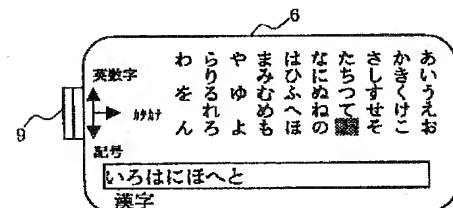 6
あいうえお
かきくけこ
さしすせそ
たちつて
なにぬねの
はひふへほ
まみむめも
や ゆ よ
らりるれろ
わ を ん
英数字
ｶﾀｶﾅ
9
記号
いろはにほへと
漢字